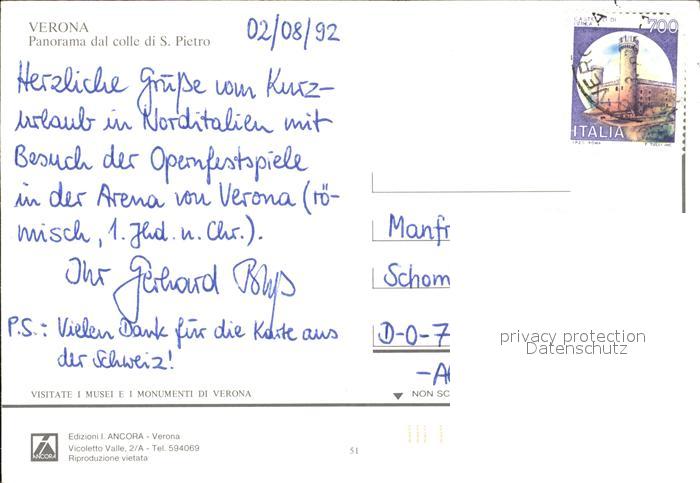 VERONA
Panorama dal colle di S. Pietro
02/08/92
700
ITALIA
Herzliche Grüße vom Kurz-
urlaub in Norditalien mit
Besuch der Opernfestspiele
in der Arena von Verona (rö-
misch, 1. Jhd. n. Chr.).
Ihr Gerhard
P.S.: Vielen Dank für die Karte aus
der Schweiz!
Manfr
Schom
D-O-7
privacy protection
Datenschutz
VISITATE I MUSEI E I MONUMENTI DI VERONA
NON SC
ANCORA
Edizioni I. ANCORA - Verona
Vicoletto Valle, 2/A - Tel. 594069
Riproduzione vietata
51